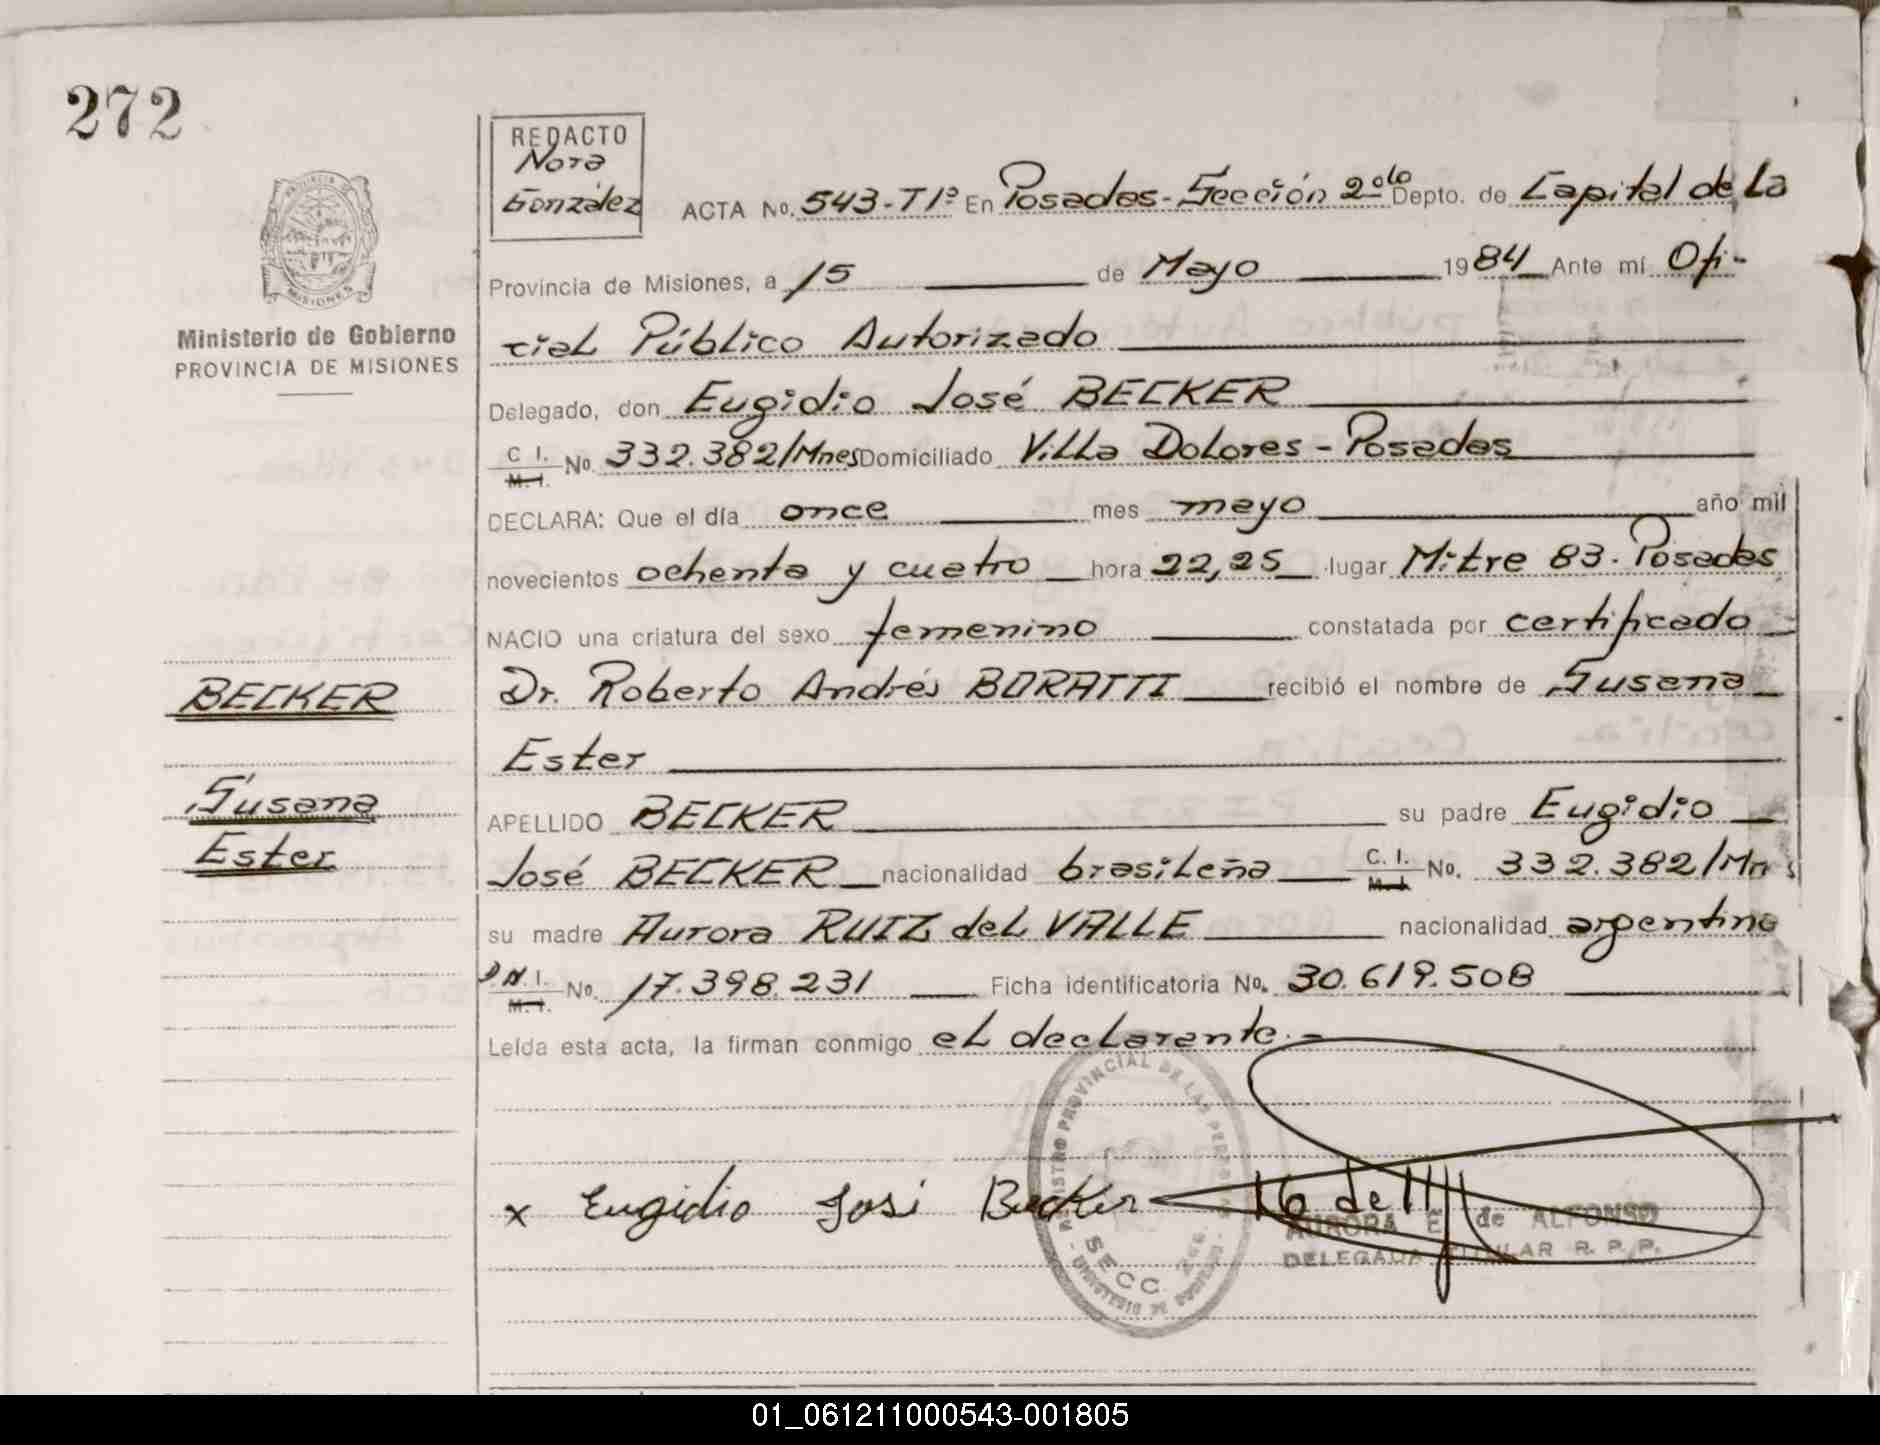 272
REDACTO
Nora
González
ACTA No. 543-T1º En Posadas-Sección 2da Depto. de Capital de la
PROVINCIA DE MISIONES
Ministerio de Gobierno
PROVINCIA DE MISIONES
Provincia de Misiones, a 15 de Mayo 1984 Ante mí Ofi-
cial Público Autorizado
Delegado, don Eugidio José BECKER
C I. M. I. No. 332.382/Mnes Domiciliado Villa Dolores - Posadas
DECLARA: Que el día once mes mayo año mil
novecientos ochenta y cuatro hora 22,25 lugar Mitre 83. Posadas
NACIO una criatura del sexo femenino constatada por certificado
Dr. Roberto Andrés BORATTI recibió el nombre de Susana
Ester
BECKER
Susana
Ester
APELLIDO BECKER su padre Eugidio
José BECKER nacionalidad brasileña C. I. M. I. No. 332.382/Mnes
su madre Aurora RUIZ del VALLE nacionalidad argentina
D.N.I. M. I. No. 17.398.231 Ficha identificatoria No. 30.619.508
Leída esta acta, la firman conmigo el declarante.-
REGISTRO PROVINCIAL DE LAS PERSONAS
SECC. 2da
x Eugidio José Becker
AURORA E. de ALFONSO
DELEGADA TITULAR R. P. P.
01_061211000543-001805